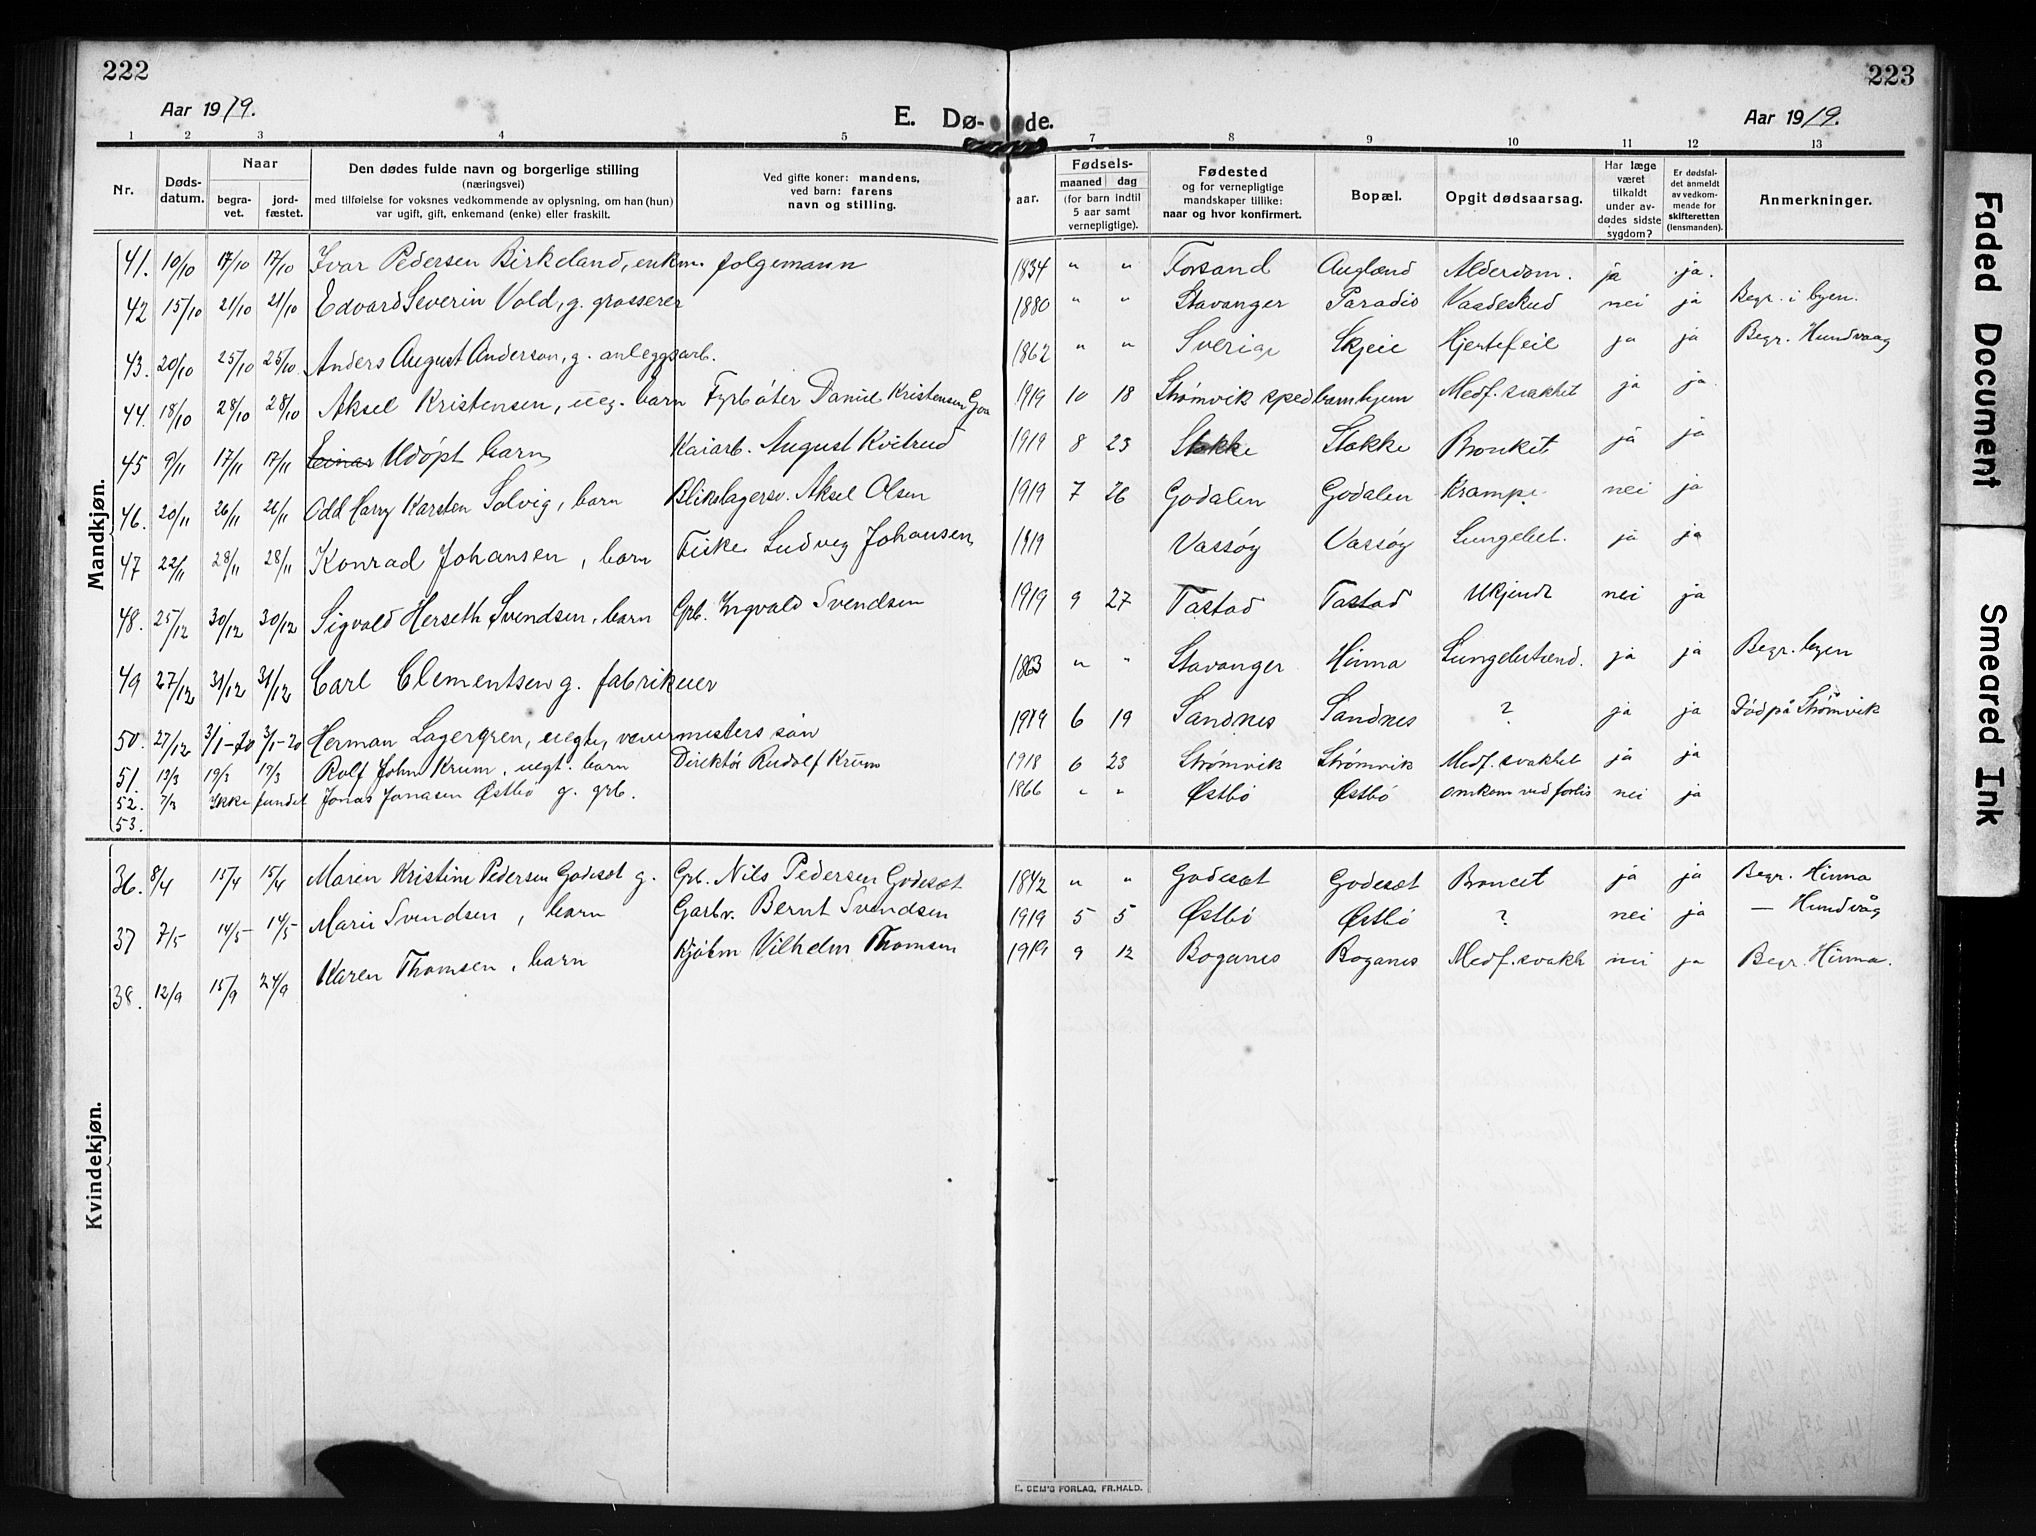 222
223
Aar 1919.
E. Dø-
de.
Aar 1919.
1 2 3 4 5 7 8 9 10 11 12 13
Nr.
Døds-
datum.
Naar
begra-
vet.
jord-
fæstet.
Den dødes fulde navn og borgerlige stilling
(næringsvei)
med tilføielse for voksnes vedkommende av oplysning, om han (hun)
var ugift, gift, enkemand (enke) eller fraskilt.
Ved gifte koner: mandens,
ved barn: farens
navn og stilling.
aar.
Fødsels-
maaned dag
(for barn indtil
5 aar samt
vernepligtige).
Fødested
og for vernepligtige
mandskaper tillike:
naar og hvor konfirmert.
Bopæl.
Opgit dødsaarsag.
Har læge
været
tilkaldt
under av-
dødes sidste
sygdom?
Er dødsfal-
det anmeldt
av vedkom-
mende for
skifteretten
(lensmanden).
Anmerkninger.
Mandkjøn.
41. 10/10 17/10 17/10 Ivar Pedersen Birkeland, enkm. folgemann 1834 " " Forsand Augland Alderdom. ja ja.
42 15/10 21/10 21/10 Edvard Severin Vold, g. grosserer 1880 " " Stavanger Paradis Vaadeskud nei ja Begr. i byen.
43. 20/10 25/10 25/10 Anders August Anderson, g. anleggsarb. 1862 " " Sverige Skjeie Hjertefeil ja ja Begr. Hundvaag
44. 18/10 28/10 28/10 Aksel Kristensen, ueg. barn Fyrbøter Daniel Kristensen 1919 10 18 Strømvik spedbarnhjem Medf. svakhet ja ja
45 9/11 17/11 17/11 Einar Udøpt barn Kaiarb. August Kvitrud 1919 8 23 Stokke Stokke Bronkit ja ja
46. 20/11 26/11 26/11 Odd Harry Karsten Solvig, barn Blikslagersv. Aksel Olsen 1919 7 26 Godalen Godalen Krampe nei ja
47 22/11 28/11 28/11 Konrad Johansen, barn Fisker Ludvig Johansen 1919 Vassøy Vassøy Lungebet. ja ja
48. 25/12 30/12 30/12 Sigvald Herseth Svendsen, barn Grb. Ingvald Svendsen 1919 9 27 Tastad Tastad Ukjendt nei ja
49 27/12 31/12 31/12 Carl Clementsen g. fabrikeier 1863 " " Stavanger Hinna Lungebetænd. ja ja Begr. byen
50. 27/12 3/1-20 3/1-20 Herman Lagergren, uegte, vævermesters søn 1919 6 19 Sandnes Sandnes ? ja ja Død på Strømvik
51. 13/3 19/3 19/3 Rolf John Krum, uegt. barn Direktør Rudolf Krum 1918 6 23 Strømvik Strømvik Medf. svakhet ja ja
52. 7/3 Ikke fundet Jonas Jonasen Østbø g. grb. 1866 " " Østbø Østbø omkom ved forlis nei ja
53.
Kvindekjøn.
36. 8/4 15/4 15/4 Maren Kristine Pedersen Godeset g. Grb. Nils Pedersen Godeset 1842 " " Godeset Godeset Broncit ja ja Begr. Hinna
37 7/5 14/5 14/5 Marie Svendsen, barn Garbv. Bernt Svendsen 1919 5 5 Østbø Østbø ? nei ja — Hundvåg
38. 12/9 15/9 24/9 Karen Thomsen, barn Kjøbm Vilhelm Thomsen 1919 9 12 Boganes Boganes Medf. svakh nei ja Begr. Hinna.
E. SEM'S FORLAG, FR.HALD.
Faded Document
Smeared Ink